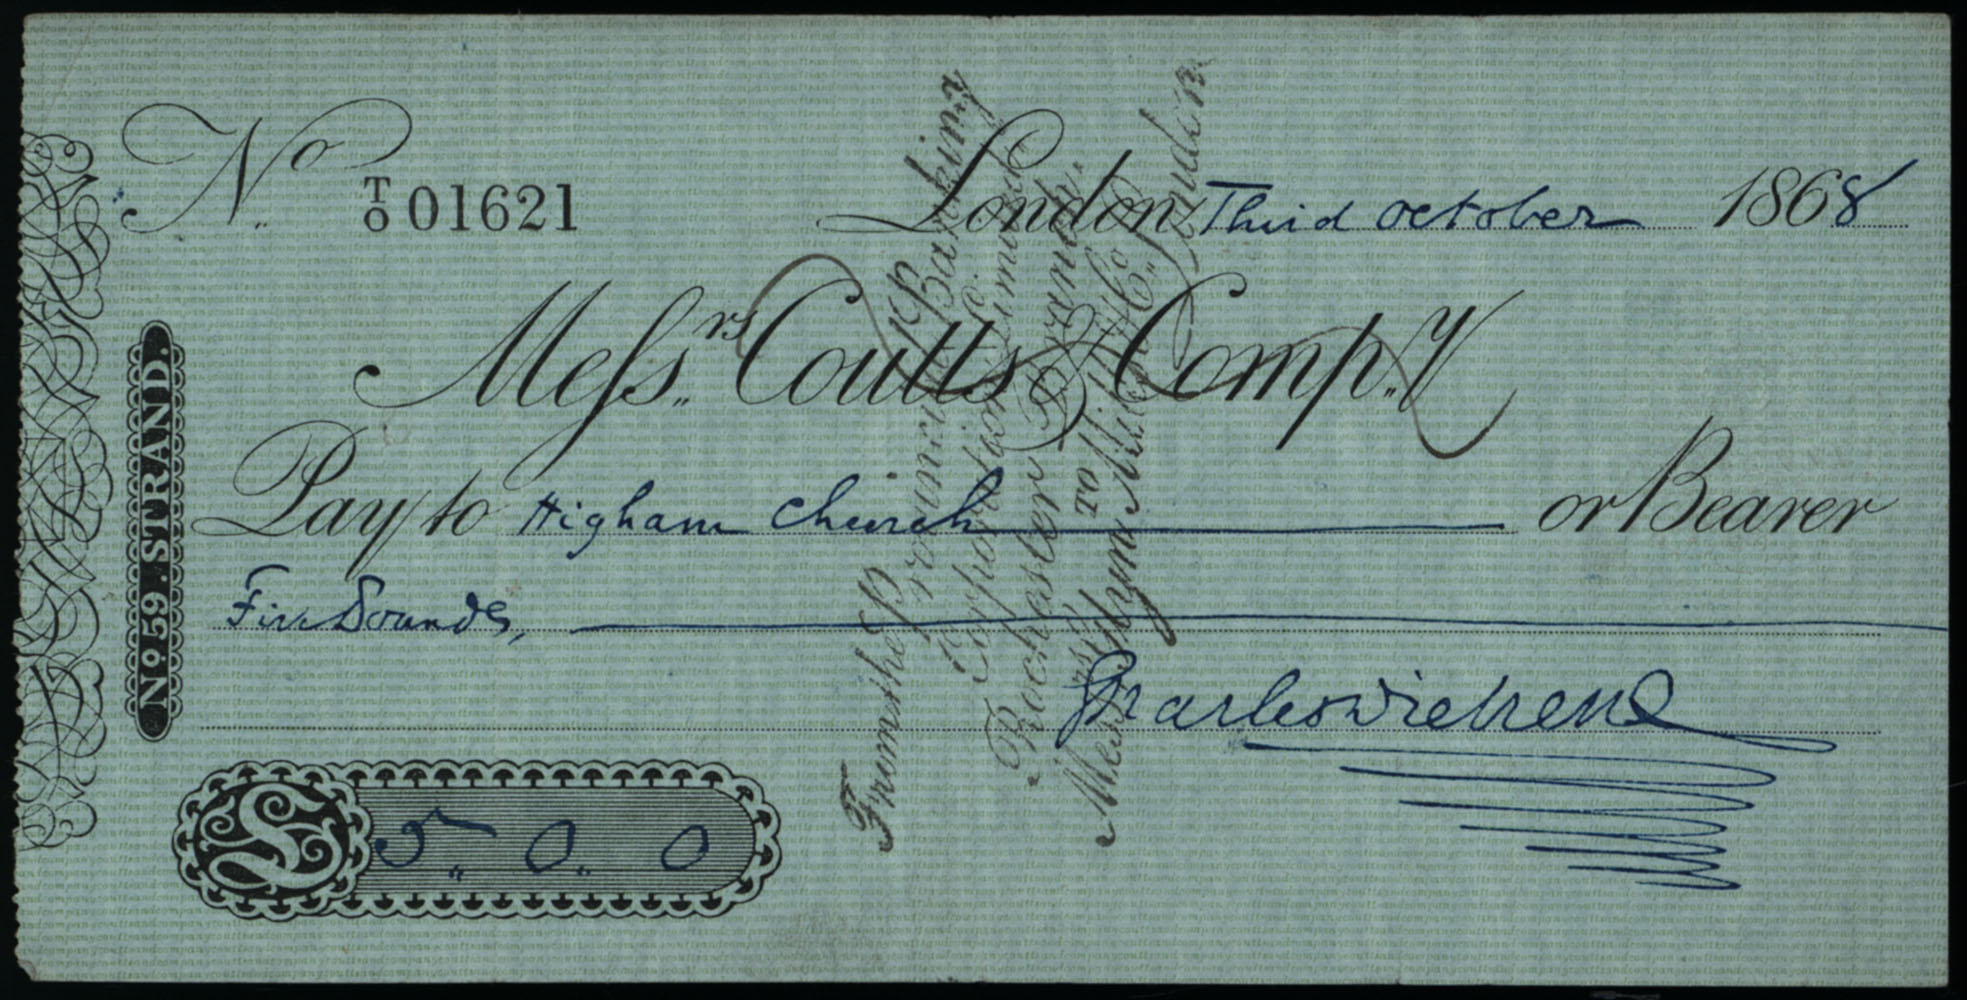 No. T/O 01621
London Third October 1868
Messrs. Coutts & Compy.
Pay to Higham Church or Bearer
Five Pounds,
Charles Dickens
£ 5.. 0.. 0
No 59. STRAND.
From the Provincial Banking
Corporation Limited
Rochester Branch,
TO
Messrs Glyn Mills & Co. London